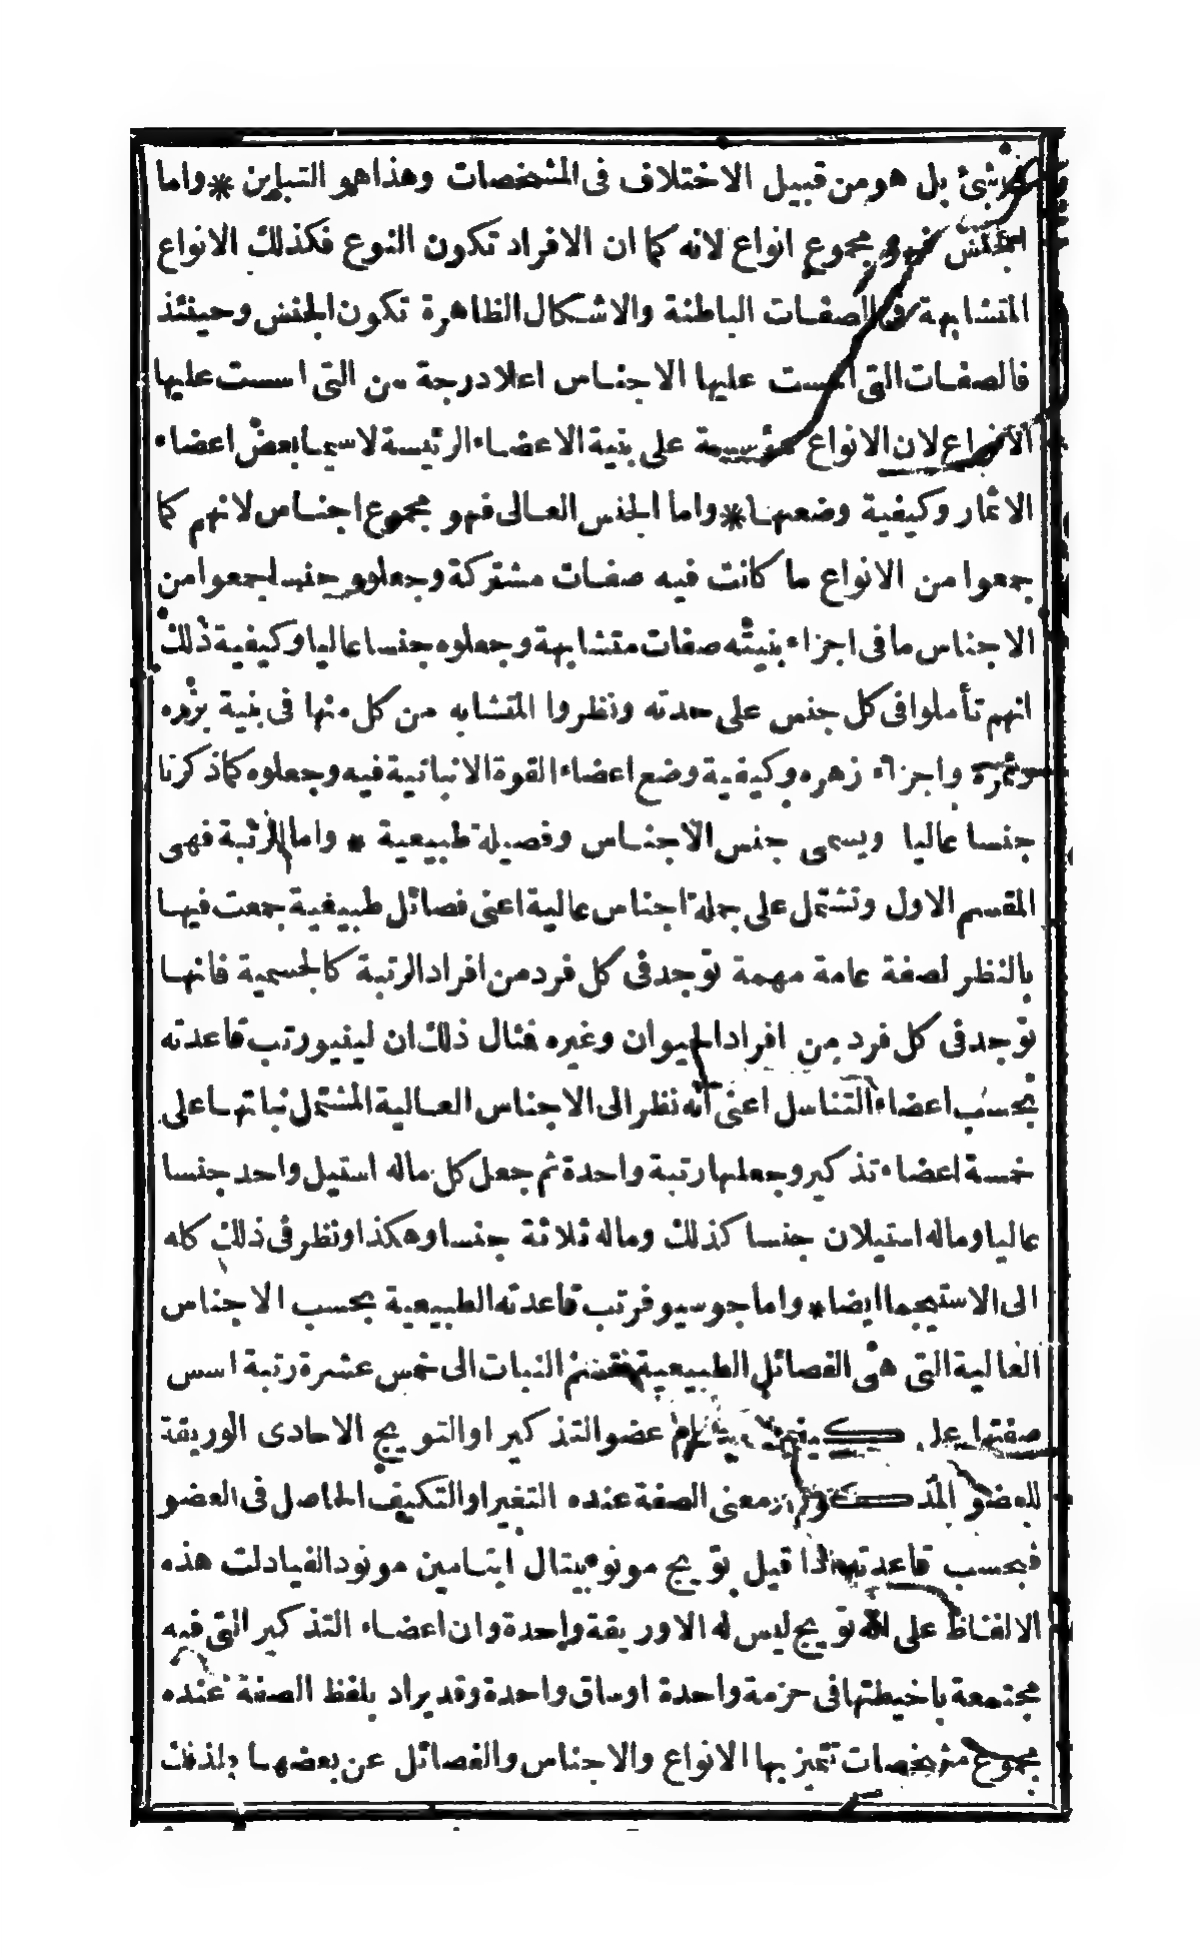 شئ بل هو من قبيل الاختلاف فى المشخصات وهذا هو التباين * واما
الجنس فهو مجموع انواع لانه كما ان الافراد تكون النوع فكذلك الانواع
المتشابهة فى الصفات الباطنة والاشكال الظاهرة تكون الجنس وحينئذ
فالصفات التى اسست عليها الاجناس اعلا درجة من التى اسست عليها
الانواع لان الانواع مؤسسة على بنية الاعضاء الرئيسة لاسيما بعض اعضاء
الاثمار وكيفية وضعها * واما الجنس العالى فهو مجموع اجناس لانهم كما
جمعوا من الانواع ما كانت فيه صفات مشتركة وجعلوه جنسا جمعوا من
الاجناس ما فى اجزاء بنيته صفات متشابهة وجعلوه جنسا عاليا وكيفية ذلك
انهم تأملوا فى كل جنس على حدته ونظروا المتشابه من كل منها فى بنية بزره
وثمرة واجزاء زهره وكيفية وضع اعضاء القوة الانباتية فيه وجعلوه كما ذكرنا
جنسا عاليا ويسمى جنس الاجناس وفصيلة طبيعية * واما الرتبة فهى
المقسم الاول وتشتمل على جملة اجناس عالية اعنى فصائل طبيعية جمعت فيها
بالنظر لصفة عامة مهمة توجد فى كل فرد من افراد الرتبة كالجسمية فانها
توجد فى كل فرد من افراد الحيوان وغيره فمثال ذلك ان لينيو رتب قاعدته
بحسب اعضاء التناسل اعنى انه نظر الى الاجناس العالية المشتمل نباتها على
خمسة اعضاء تذكير وجعلها رتبة واحدة ثم جعل كل ماله استيل واحد جنسا
عاليا وماله استيلان جنسا كذلك وماله ثلاثة جنسا وهكذا ونظر فى ذلك كله
الى الاستيجما ايضا * واما جوسيو فرتب قاعدته الطبيعية بحسب الاجناس
العالية التى هى الفصائل الطبيعية فقسم النبات الى خمس عشرة رتبة اسس
صفتها على كيفية عضو التذكير او التويج الاحادى الوريقة
للعضو المذكور معنى الصفة عنده التغير او التكيف الحاصل فى العضو
فبحسب قاعدته اذا قيل تويج مونو بيتال ابتامين مونود الفيا دلت هذه
الالفاظ على انه تويج ليس له الا وريقة واحدة وان اعضاء التذكير التى فيه
مجتمعة باخيطتها فى حزمة واحدة او ساق واحدة وقد يراد بلفظ الصفة عنده
مجموع مشخصات تتميز بها الانواع والاجناس والفصائل عن بعضها